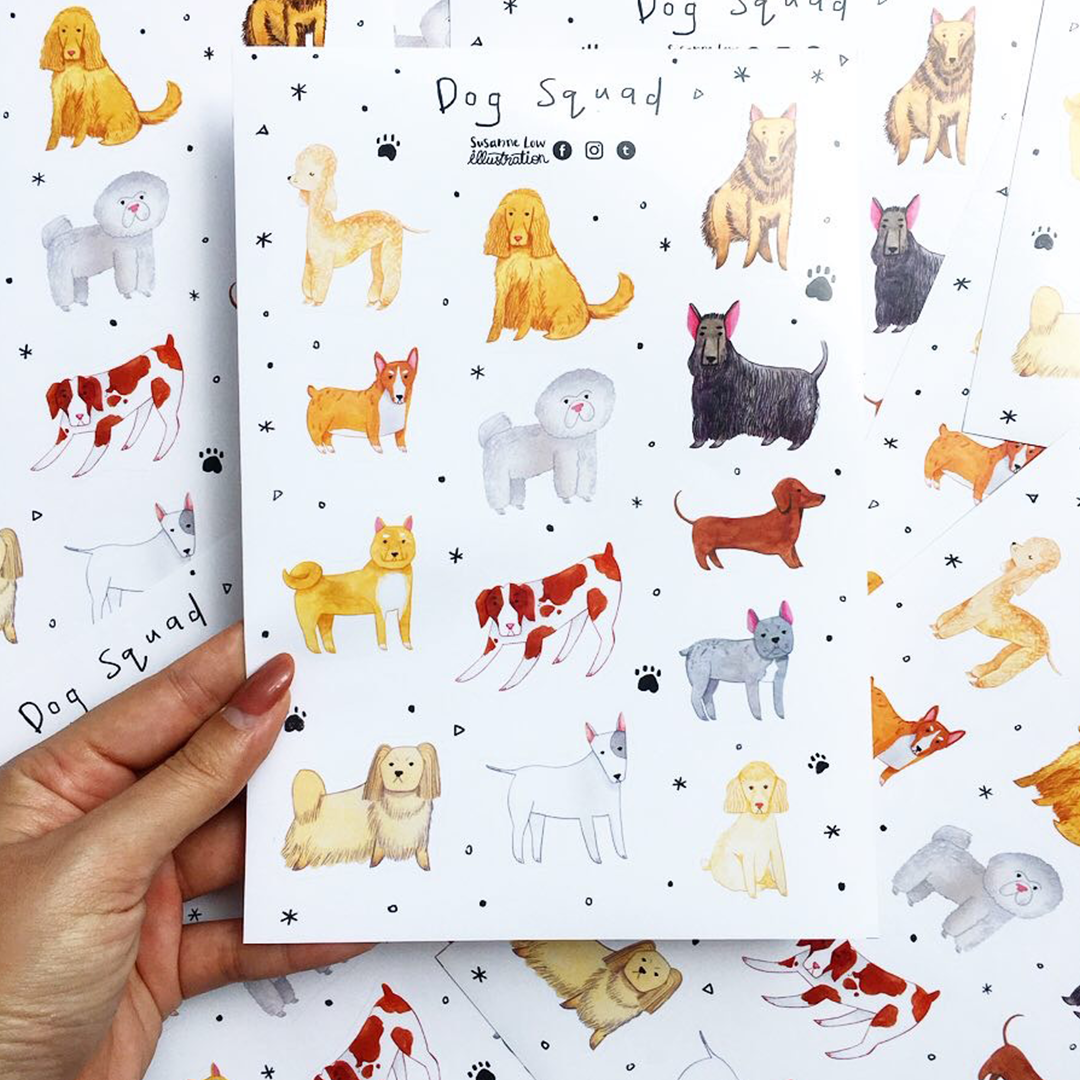 Dog Squad
Dog Squad
Susanne Low
illustration
Dog Squad